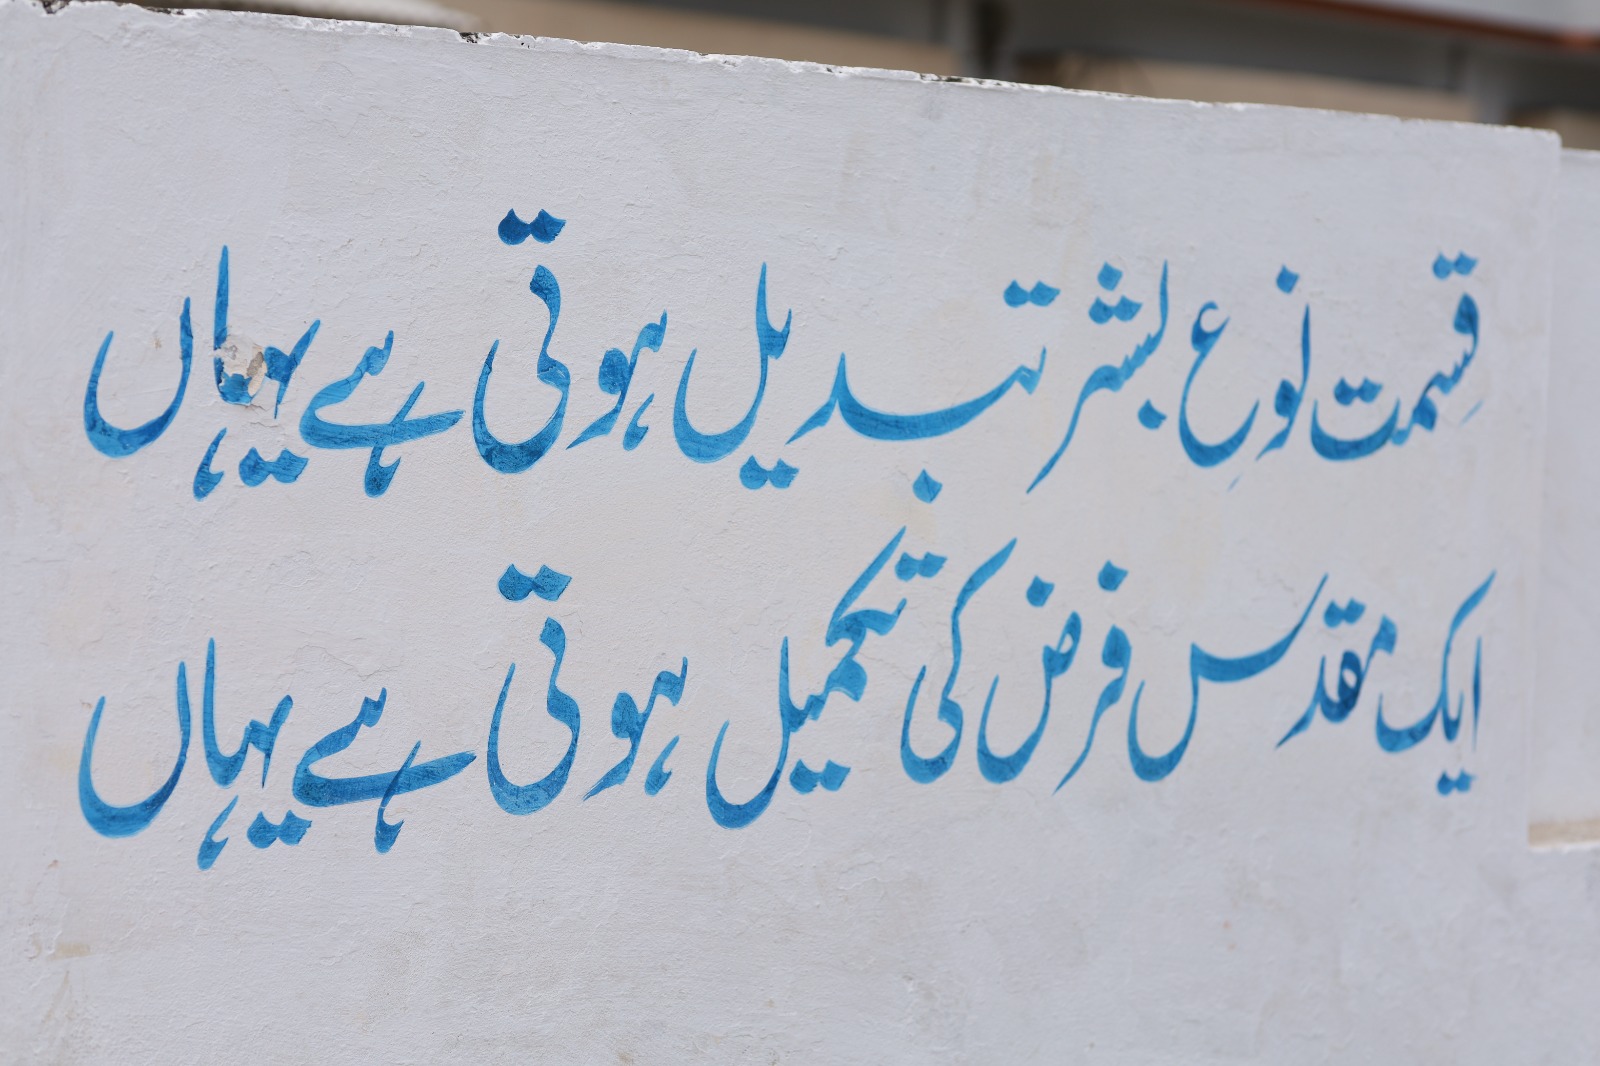 قسمت نوع بشر تبدیل ہوتی ہے یہاں
ایک مقدس فرض کی تکمیل ہوتی ہے یہاں